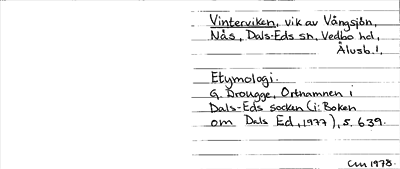 Vinterviken, vik av Vångsjön,
Nås, Dals-Eds sn, Vedbo hd,
Älvsb.l.
Etymologi.
G. Drougge, Ortnamnen i
Dals-Eds socken (i: Boken
om Dals Ed, 1977), s. 639.
CM 1978.